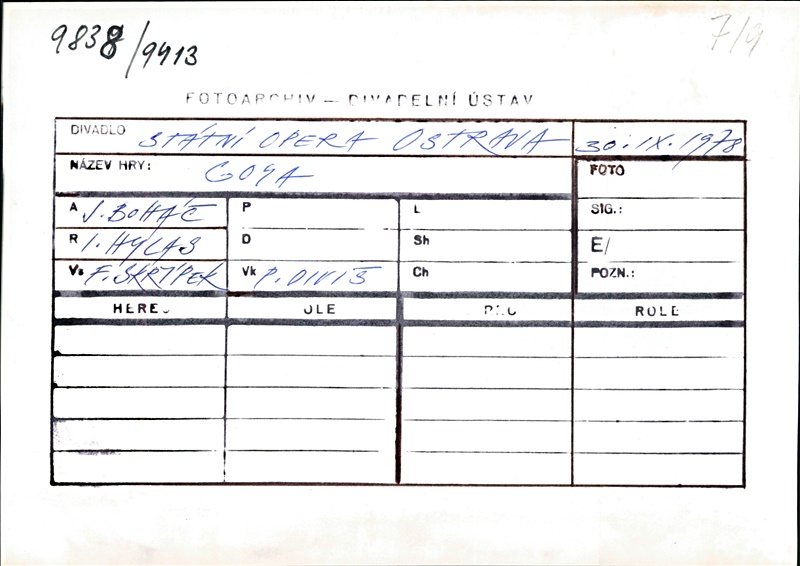 9838/9413
7/9
FOTOARCHIV — DIVADELNÍ ÚSTAV
DIVADLO STÁTNÍ OPERA OSTRAVA 30.IX.1978
NÁZEV HRY: GOYA FOTO
A J. BOHÁČ P L SIG.:
R I. HYLAS D Sh E/
Vs F. SKŘÍPEK Vk P. DIVIŠ Ch POZN.:
HEREC OLE ROLE